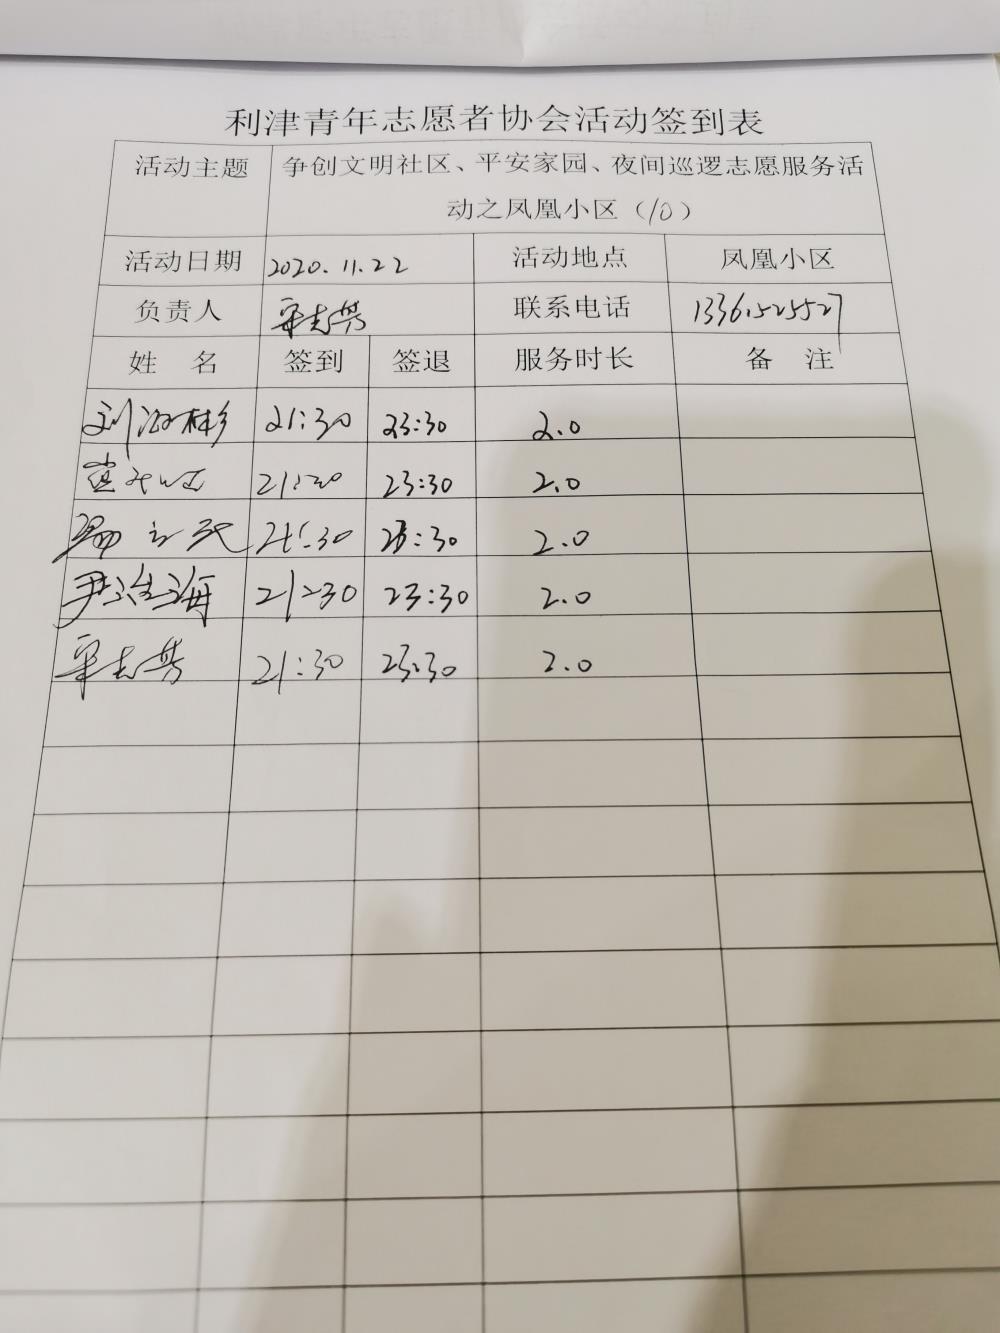 利津青年志愿者协会活动签到表
活动主题 争创文明社区、平安家园、夜间巡逻志愿服务活
动之凤凰小区（10）
活动日期 2020.11.22 活动地点 凤凰小区
负责人 宋志芳 联系电话 13361525527
姓 名 签到 签退 服务时长 备 注
刘 彬 21:30 23:30 2.0
21:30 23:30 2.0
21:30 23:30 2.0
尹 海 21:30 23:30 2.0
宋志芳 21:30 23:30 2.0